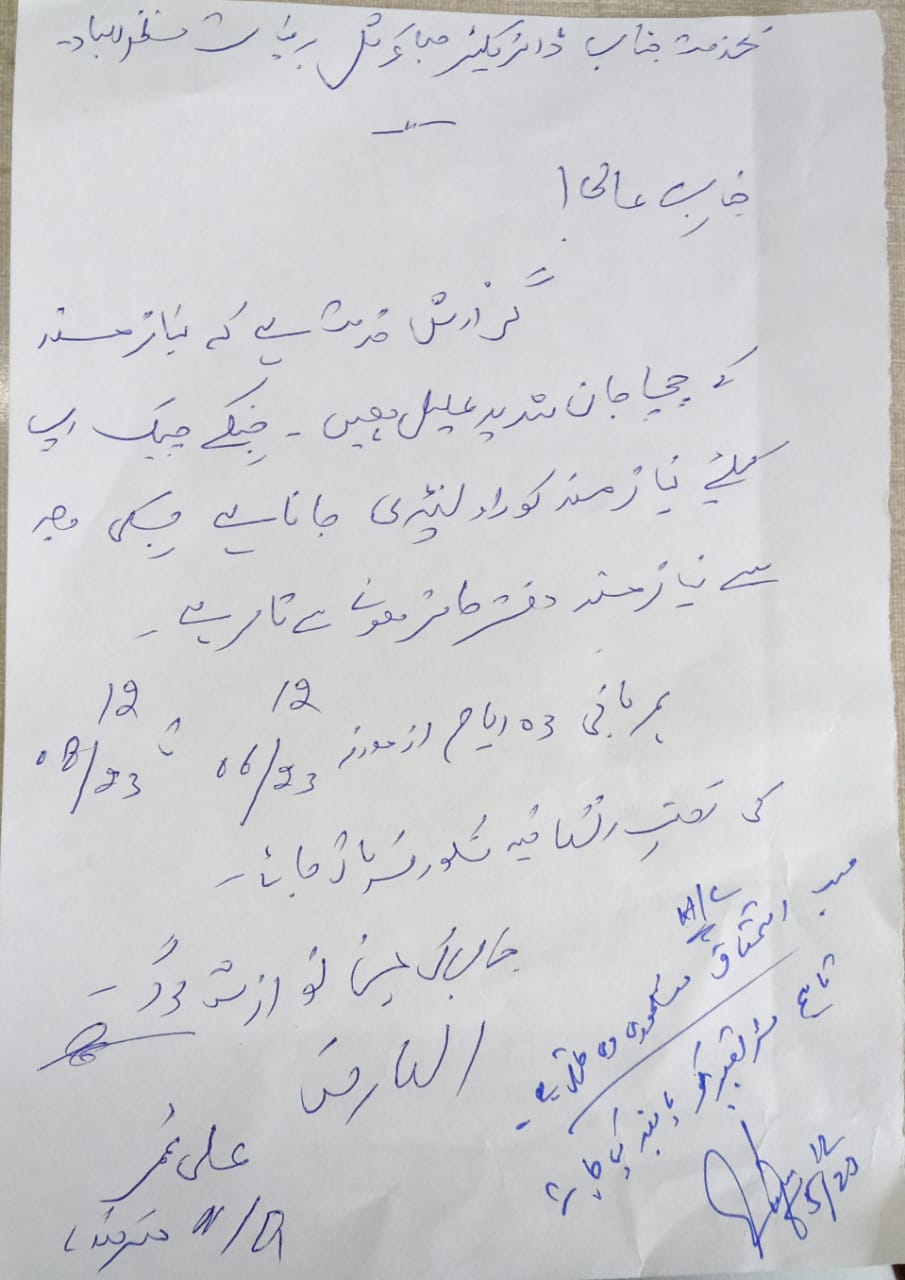 بخدمت جناب ڈائریکٹر صباءوٹل ریاست مظفرآباد۔
جناب عالی!
گزارش خدمت ہے کہ نیازمند
کے چچا جان شدید علیل ہیں۔ جنکے چیک اپ
کیلئے نیازمند کو راولپنڈی جانا ہے جسکی وجہ
سے نیازمند دفتر حاضر ہونے سے قاصر ہے۔
بمہربانی 03 ایام از مورخہ 06/12/23 تا 08/12/23
کی رخصت اتفاقیہ منظور فرمائی جائے۔
جناب کی عین نوازش ہوگی۔
العارض
علی عمر
حسب استحقاق
تاہم کو پابند کیا جائے
12
5/23